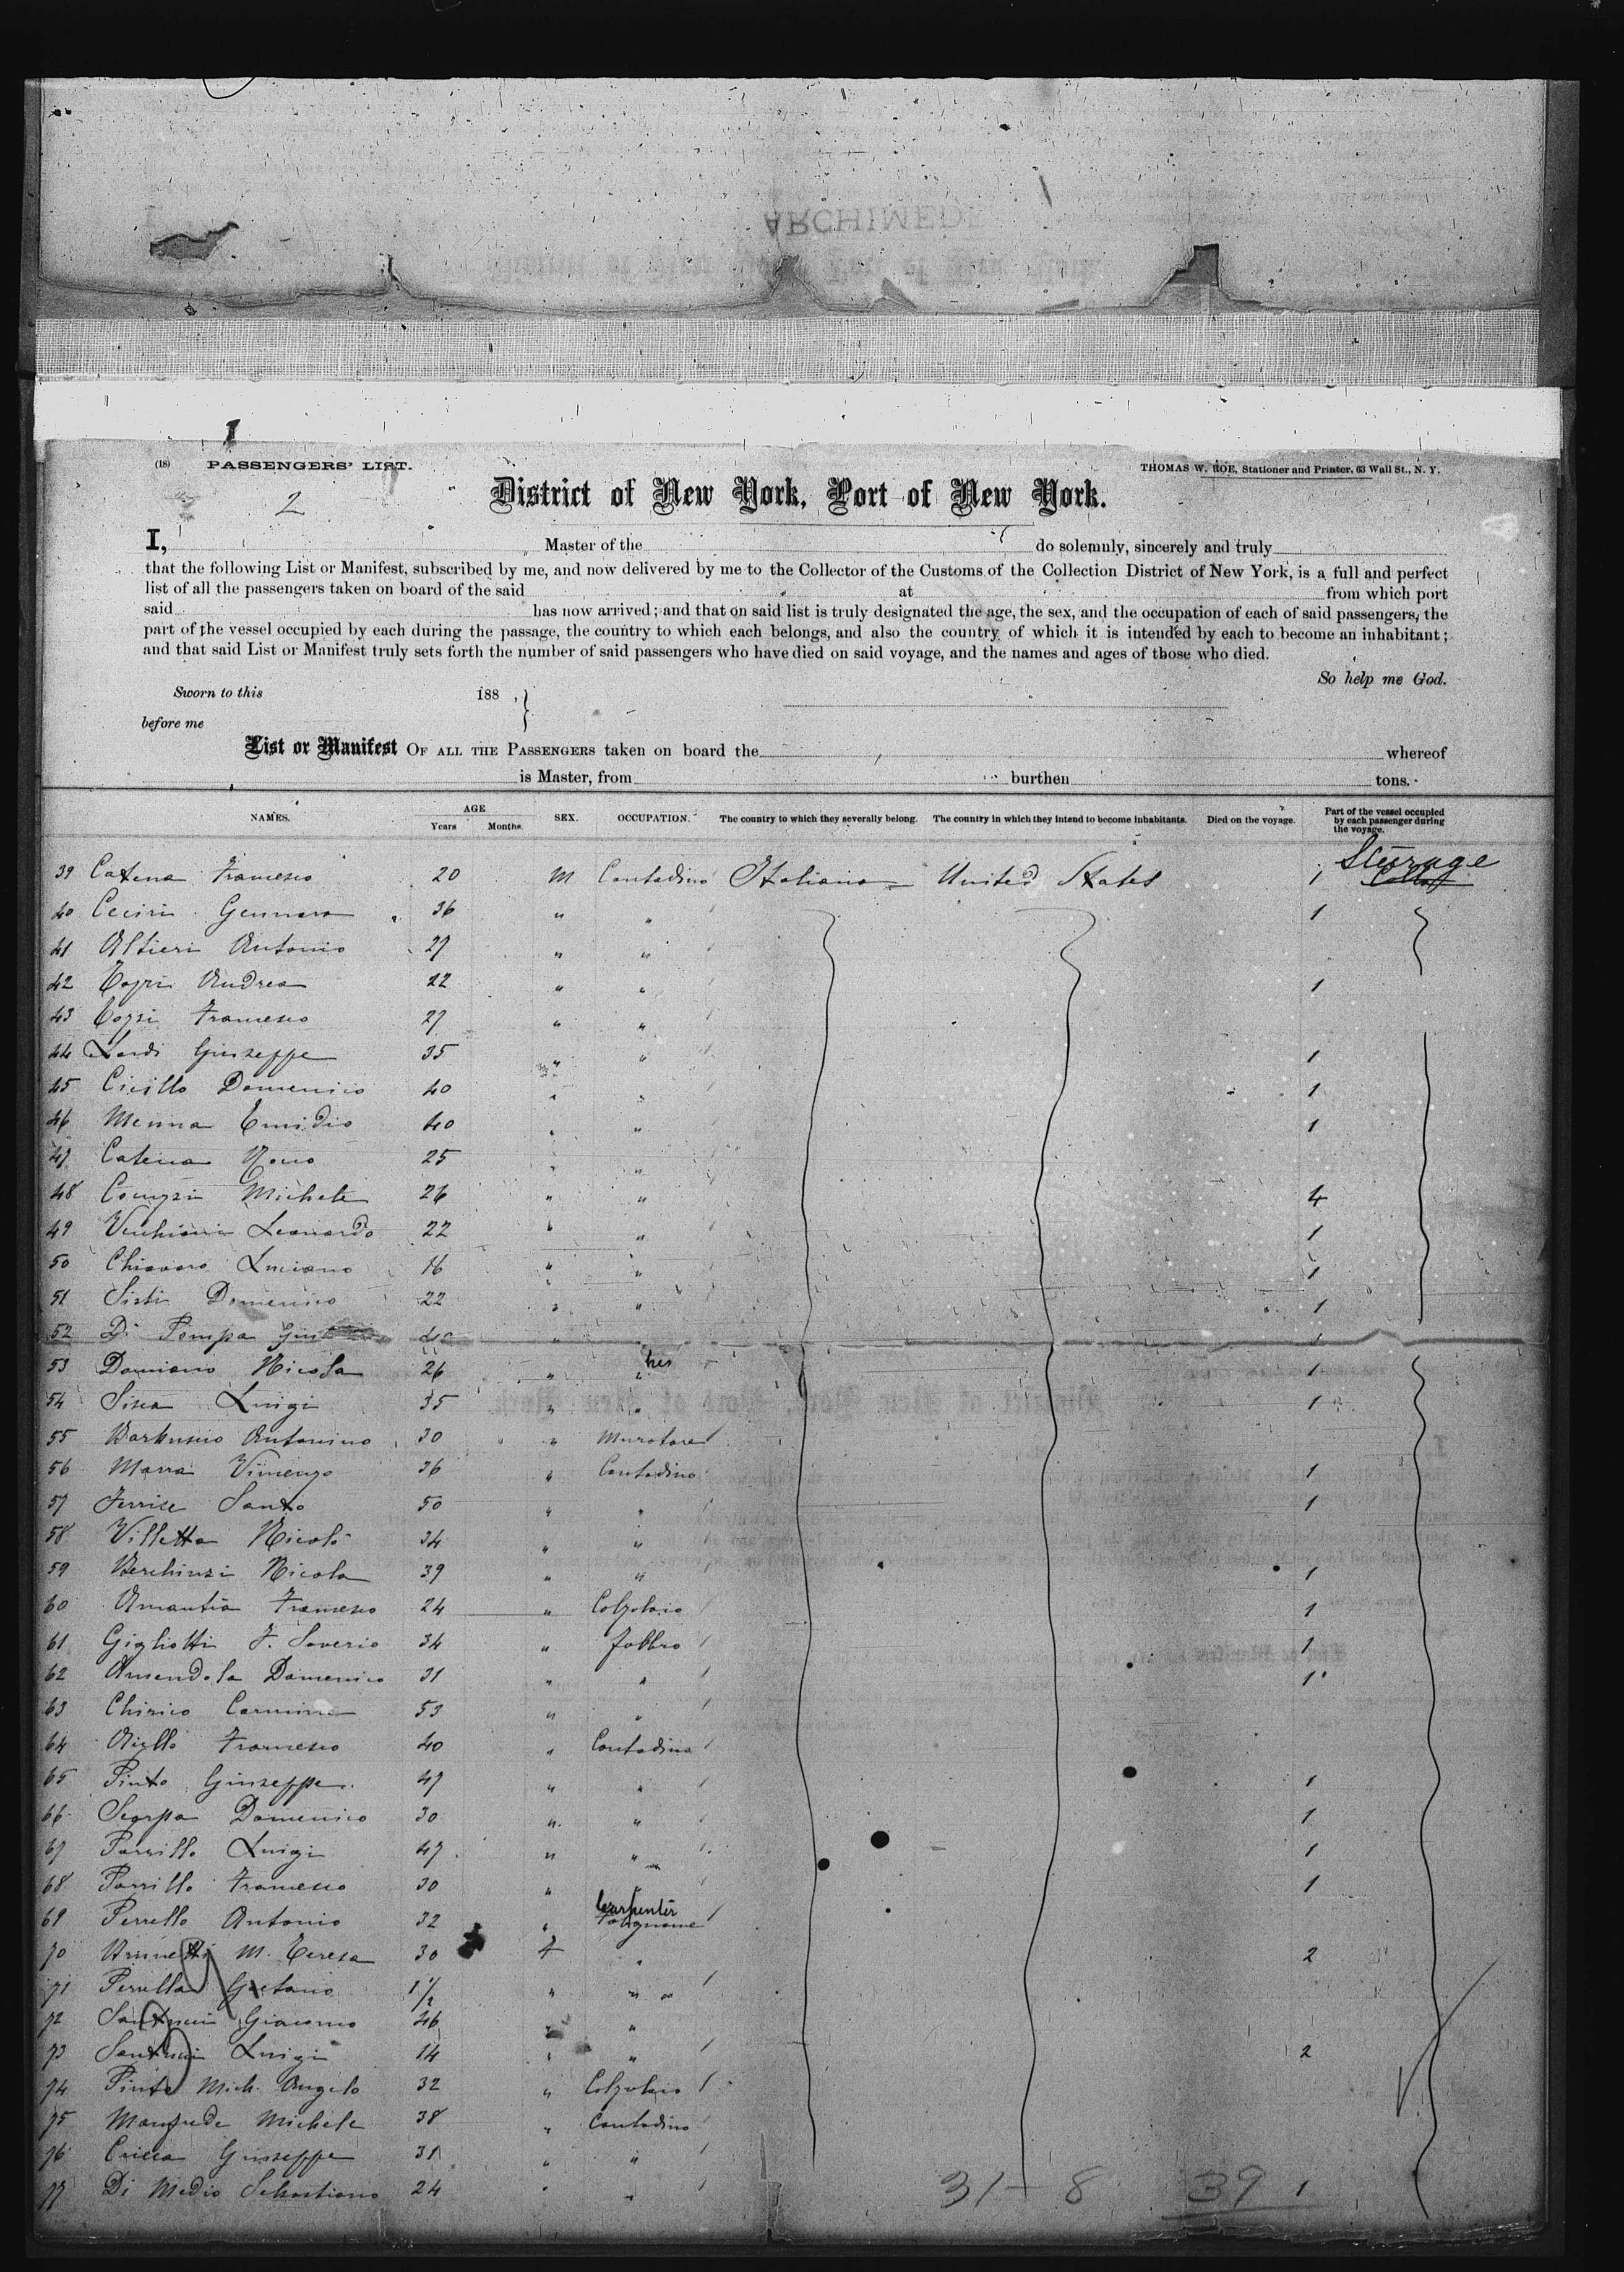 1
(18) PASSENGERS' LIST. THOMAS W. ROE, Stationer and Printer, 63 Wall St., N. Y.
2
District of New York, Port of New York.
I, Master of the do solemnly, sincerely and truly
that the following List or Manifest, subscribed by me, and now delivered by me to the Collector of the Customs of the Collection District of New York, is a full and perfect
list of all the passengers taken on board of the said at from which port
said has now arrived; and that on said list is truly designated the age, the sex, and the occupation of each of said passengers, the
part of the vessel occupied by each during the passage, the country to which each belongs, and also the country of which it is intended by each to become an inhabitant;
and that said List or Manifest truly sets forth the number of said passengers who have died on said voyage, and the names and ages of those who died.
So help me God.
Sworn to this 188 , }
before me
List or Manifest OF ALL THE PASSENGERS taken on board the whereof
is Master, from burthen tons.
NAMES. AGE Years Months. SEX. OCCUPATION. The country to which they severally belong. The country in which they intend to become inhabitants. Died on the voyage. Part of the vessel occupied by each passenger during the voyage.
Steerage
39 Catena Francesco 20 M Contadino Italiana United States 1
40 Gennaro 36 " " 1
41 Altieri Antonio 27 " "
42 Andrea 22 " " 1
43 Francesco 27 " "
44 Giuseppe 35 " " 1
45 Cicillo Domenico 40 " " 1
46 Menna Emidio 40 " " 1
47 Catena 25 " "
48 Michele 26 " " 4
49 Leonardo 22 " " 1
50 Luciano 16 " " 1
51 Sisti Domenico 22 " " 1
52 Di 40 " " 1
53 Damiano Nicola 26 " " 1
54 Luigi 35 " " 1
55 Antonino 30 " Muratore
56 Marra Vincenzo 36 " Contadino 1
57 Santo 50 " " 1
58 Villetta Nicolò 34 " "
59 Nicola 39 " " 1
60 Amantia Francesco 24 " Calzolaio 1
61 Gigliotti F. Saverio 34 " Fabbro 1
62 Amendola Domenico 31 " " 1
63 Chirico Carmine 53 " "
64 Aiello Francesco 40 " Contadino
65 Pinto Giuseppe 47 " " 1
66 Domenico 30 " " 1
67 Parrillo Luigi 47 " " 1
68 Parrillo Francesco 30 " " 1
Carpenter
69 Perrello Antonio 32 " Falegname
70 Brunetti M. Teresa 30 F " 2
71 Perrella Gaetano 1 1/2 " "
72 Giacomo 46 " "
73 Luigi 14 " " 2
74 Pinto Mich. Angelo 32 " Calzolaio
75 Michele 38 " Contadino
76 Giuseppe 31 " "
77 Di Medio Sebastiano 24 " " 1
31 - 8 39